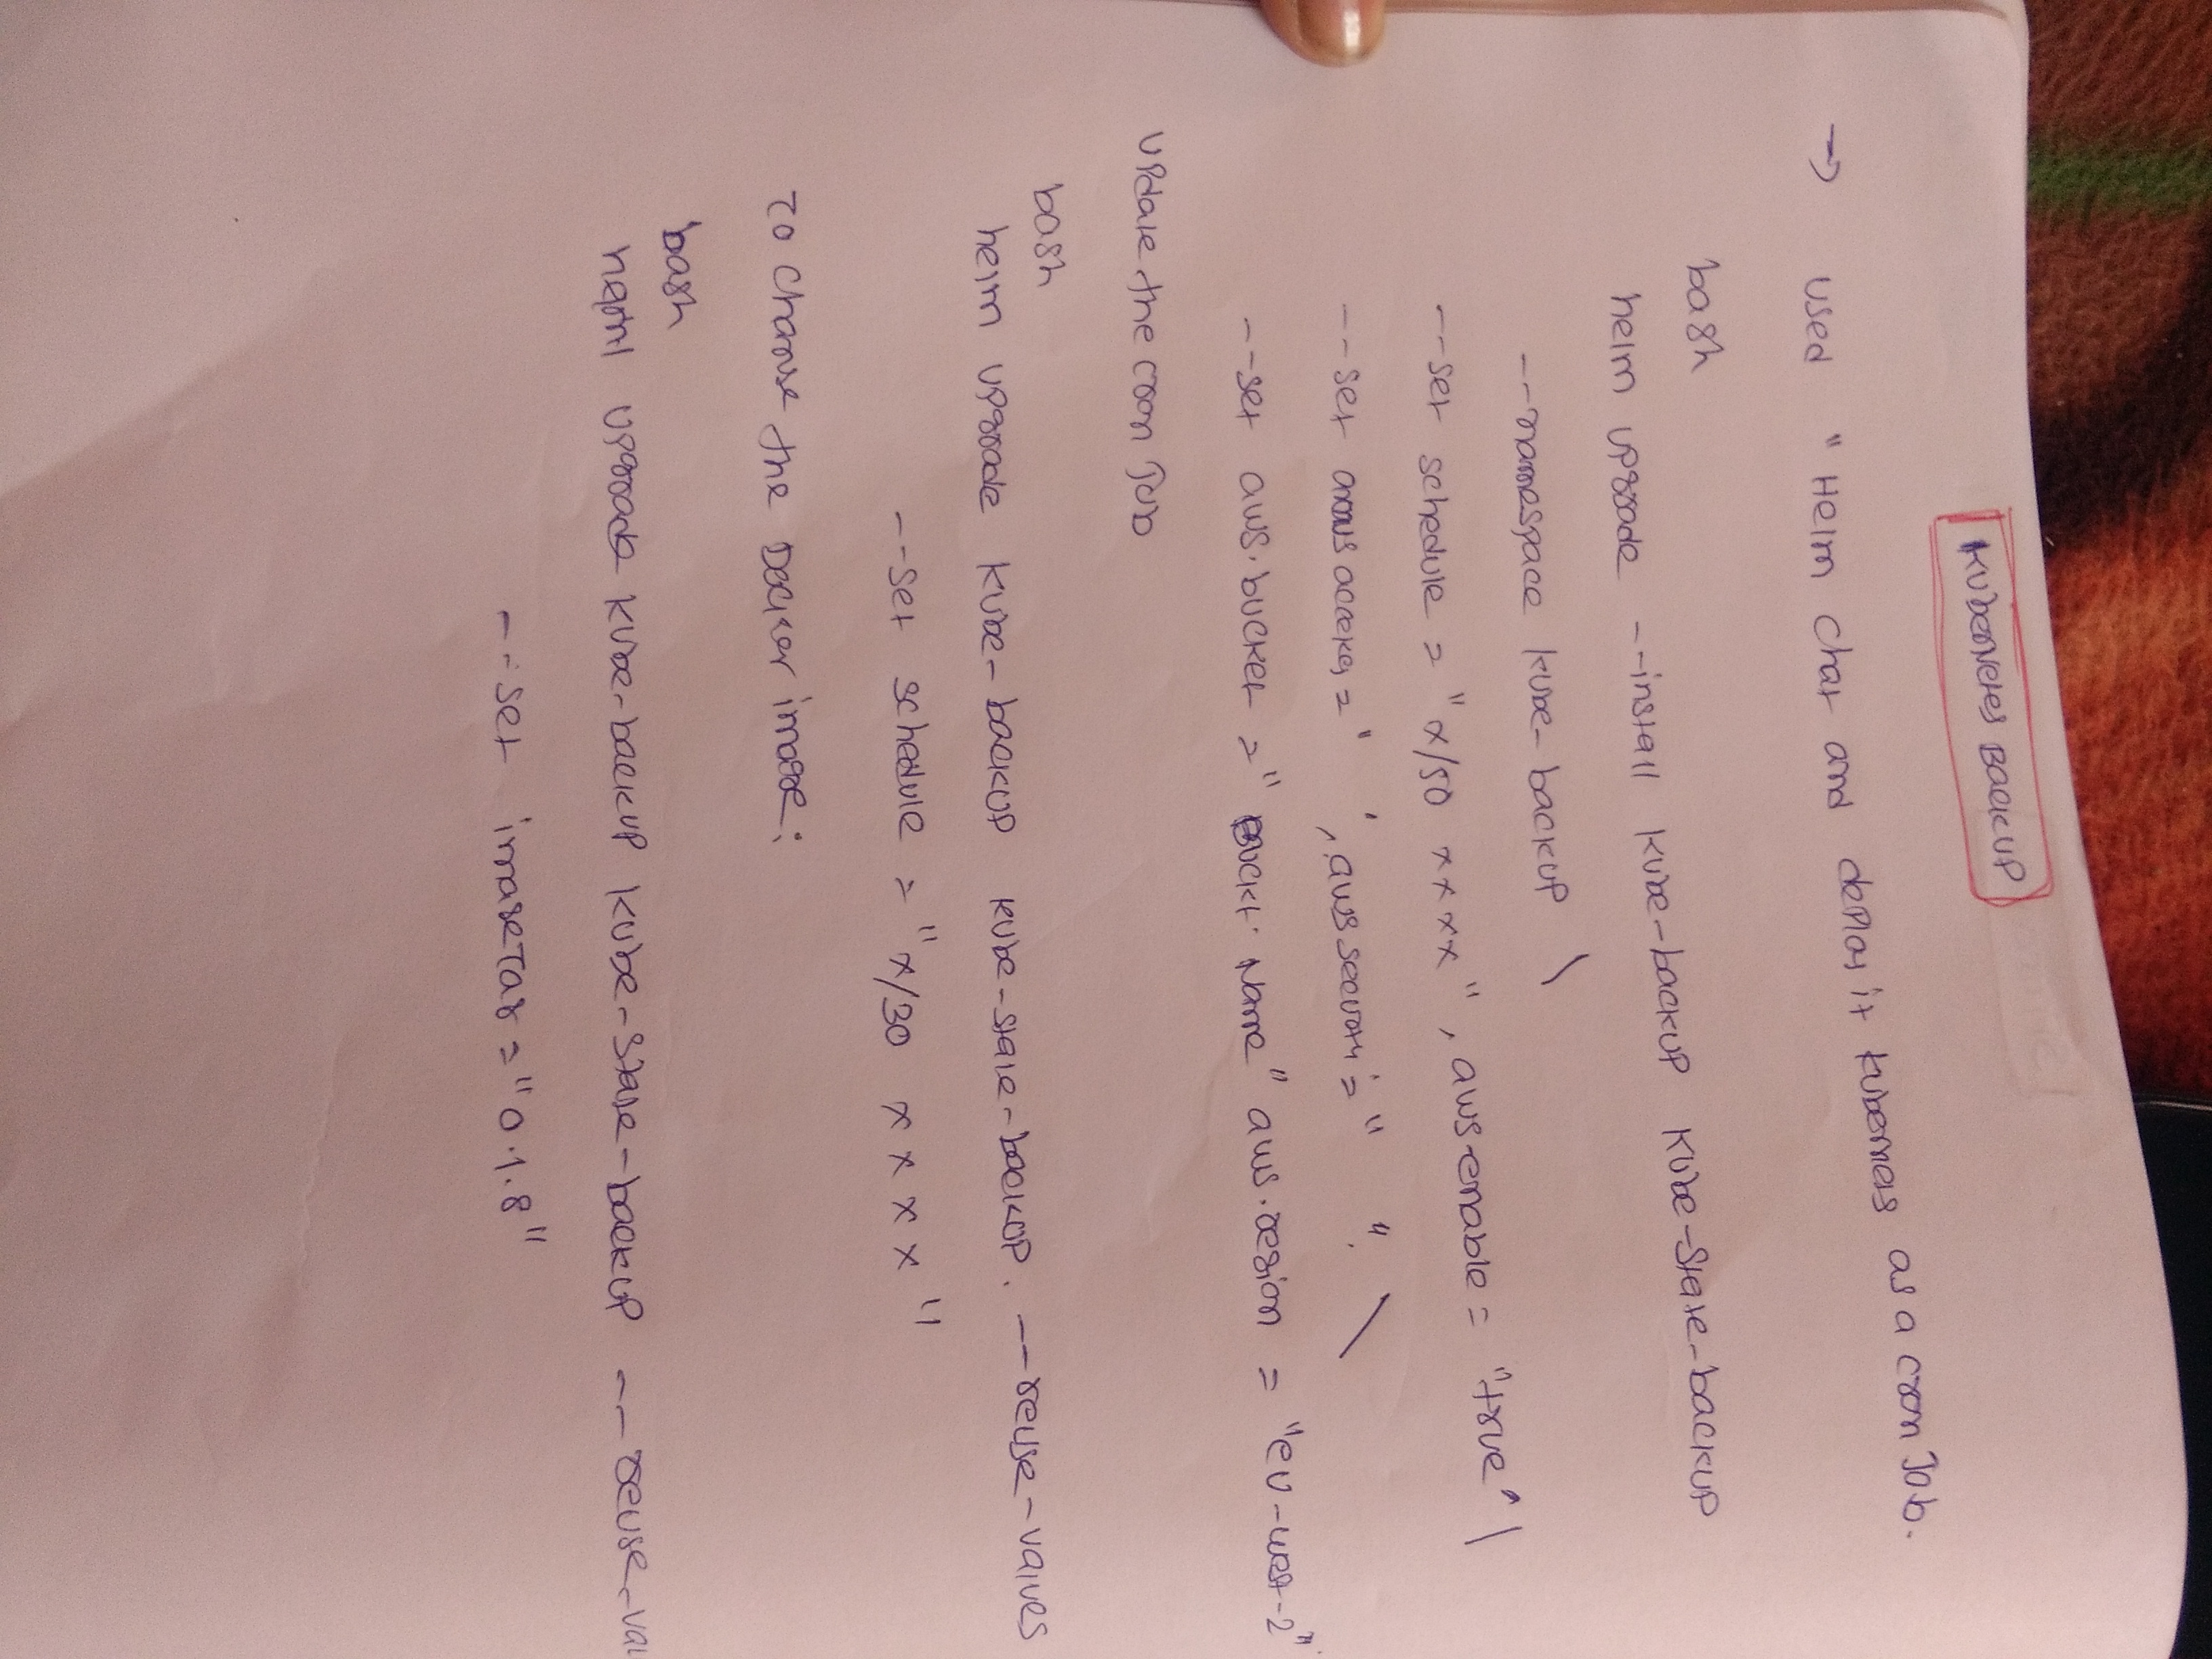 Kubernetes Backup
→ used " Helm Chat and deploy it Kubernets as a cron Job.
bash
helm upgrade --install kube-backup kube-state-backup
--namespace kube-backup \
--set schedule = "*/50 * * * *", aws-enable = "true" \
--set = " ", aws = " ". \
--set aws.bucket = "Buckt Name" aws.region = "eu-west-2"
Update the cron Job
bash
helm upgrade kube-backup kube-state-backup. --reuse-values
--set schedule = "*/30 * * * *"
To change the Docker image:
bash
helm upgrade kube-backup kube-state-backup --reuse-val
--set imageTag = "0.1.8"